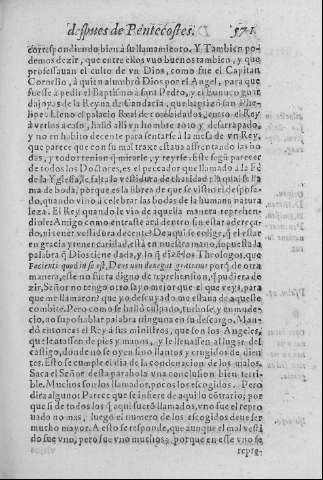 despues de Pentecostes. 571
correspondiendo bien a su llamamiẽto. Y Tambien po-
demos dezir, que entre ellos vuo buenos tambien, y que
professauan el culto de vn Dios, como fue el Capitan
Cornelio, à quien alumbrò Dios por el Angel, para que
fuesse a pedir el Baptismo à sant Pedro, y el Eunuco guar
dajoyas de la Reyna de Candacia, que baptizò san Phe-
lipe. Lleno el palacio Real de combidados, entrò el Rey
à verlos acaso, hallò alli vn hombre roto y desarrapado,
y no en habito decente para sentarse à la mesa de vn Rey,
que parece que con su mal traxe estaua affrentando las bo
das, y todos tenian q̃ mirarle, y reyrse. Este segũ parecer
de todos los Doctores, es el peccador que llamado a la Fè
de la Yglesia, le falta la vestidura de charidad: la qual se lla
ma de boda, porque es la librea de que se vistio el desposa-
do, quando vino à celebrar las bodas de la humana natura
leza. El Rey quando le vio de aquella manera reprehen-
diole: Amigo como entraste acà dentro sin estar adereça-
do, ni tener vestidura decente? De aqui se colige, q̃ el estar
en gracia y tener caridad, està en nuestra mano, supuesta la
palabra q̃ Dios tiene dada, y lo q̃ dizẽ los Theologos, que
Facienti quod in se est, Deus non denegat gratiam: porq̃ de otra
manera, esse no fuera digno de reprehension, q̃ pudiera de
zir, Señor no tengo otro sayo mejor que el que veys, para
que me llamaron? que yo descuydo me estaua de aqueste
combite. Pero como se hallò culpado, turbose, y enmude-
cio, no supo hablar palabra ninguna en su descargo. Man-
dò entonces el Rey à sus ministros, que son los Angeles,
que le atassen de pies y manos, y le lleuassen al lugar del
castigo, donde no se oyen sino llantos y cruxidos de dien
tes. Esto se cumple el dia de la condenacion de los malos.
Saca el Señor desta parabola vna conclusion bien terri-
ble. Muchos son los llamados, pocos los escogidos. Pero
dira alguno: Parece que se infiere de aqui lo cõtrario; por
que si de todos los q̃ aqui sucedè llamados, vno fue el repro
uado no mas, luego el numero de los escogidos deue ser
mucho mayor. A esto se responde, que aunque el mal vesti
do fue vno, pero fue vno muchos, porque en esse vno se
repre-